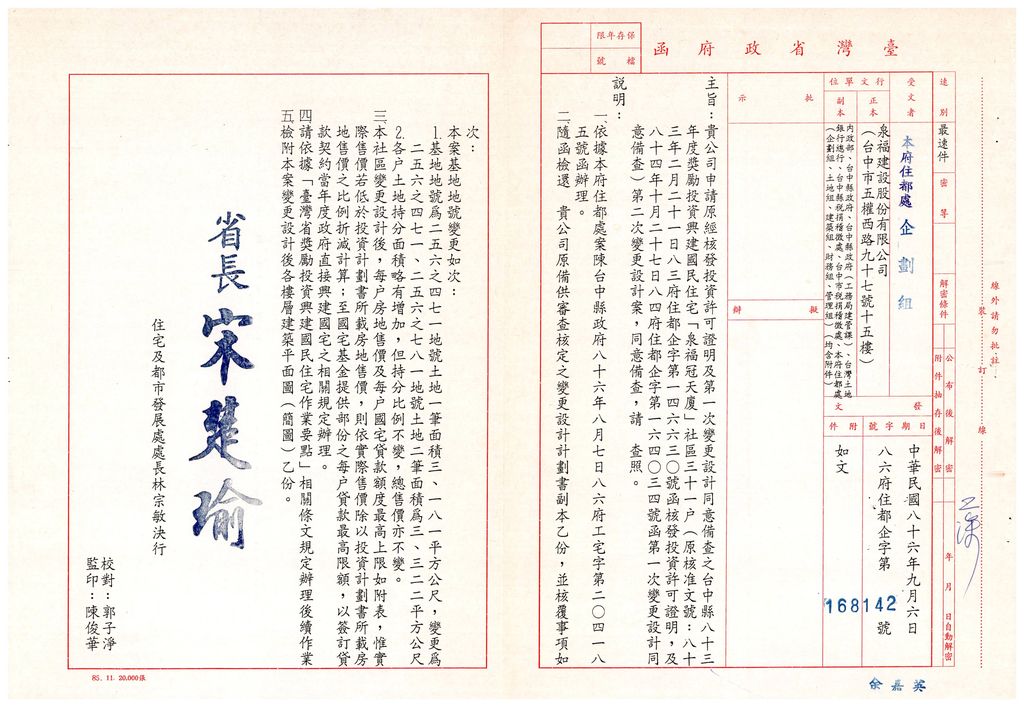 臺灣省政府函
保存年限
檔號
速別
最速件
密等
解密條件
公布後解密
附件抽存後解密
年 月 日自動解密
線外請勿批註
裝
訂
線
受文者
本府住都處
企劃組
行文單位
正本
泉福建設股份有限公司
(台中市五權西路九十七號十五樓)
副本
內政部、台中縣政府、台中縣政府(工務局建管課)、台灣土地
銀行總行、台中縣稅捐稽徵處、台中市稅捐稽徵處、本府住都處
(企劃組、土地組、建築組、財務組、管理組)(均含附件)
發文
日期
中華民國八十六年九月六日
字號
八六府住都企字第
168142
號
附件
如文
批示
擬辦
主旨:貴公司申請原經核發投資許可證明及第一次變更設計同意備查之台中縣八十三
年度獎勵投資興建國民住宅「泉福冠天廈」社區三十一户(原核准文號:八十
三年二月二十一日八三府住都企字第一四六六三〇號函核發投資許可證明,及
八十四年十月二十七日八四府住都企字第一六四〇三四號函第一次變更設計同
意備查)第二次變更設計案,同意備查,請 查照。
説明:
一、依據本府住都處案陳台中縣政府八十六年八月七日八六府工宅字第二〇四一八
五號函辦理。
二、隨函檢還 貴公司原備供審查核定之變更設計計劃書副本乙份,並核覆事項如
次:
本案基地地號變更如次:
1.基地地號為二五六之四七一地號土地一筆面積三、一八一平方公尺,變更為
二五六之四七一、二五六之七八一地號土地二筆面積為三、三二二平方公尺
2.各户土地持分面積略有增加,但持分比例不變,總售價亦不變。
三、本社區變更設計後,每户房地售價及每户國宅貸款額度最高上限如附表,惟實
際售價若低於投資計劃書所載房地售價,則依實際售價除以投資計劃書所載房
地售價之比例折減計算;至國宅基金提供部份之每户貸款最高限額,以簽訂貸
款契約當年度政府直接興建國宅之相關規定辦理。
四、請依據「臺灣省獎勵投資興建國民住宅作業要點」相關條文規定辦理後續作業
五、檢附本案變更設計後各樓層建築平面圖(簡圖)乙份。
省長宋楚瑜
住宅及都市發展處處長林宗敏決行
校對:郭子淨
監印:陳俊華
85. 11. 20,000張
余嘉英